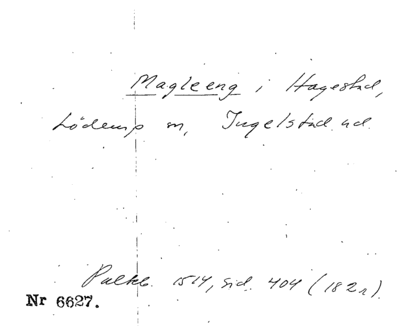 Magleeng i Hagestad,
Löderup sn, Ingelstad hd.
Palkb. 1514, sid. 404 (182 r).
Nr 6627.